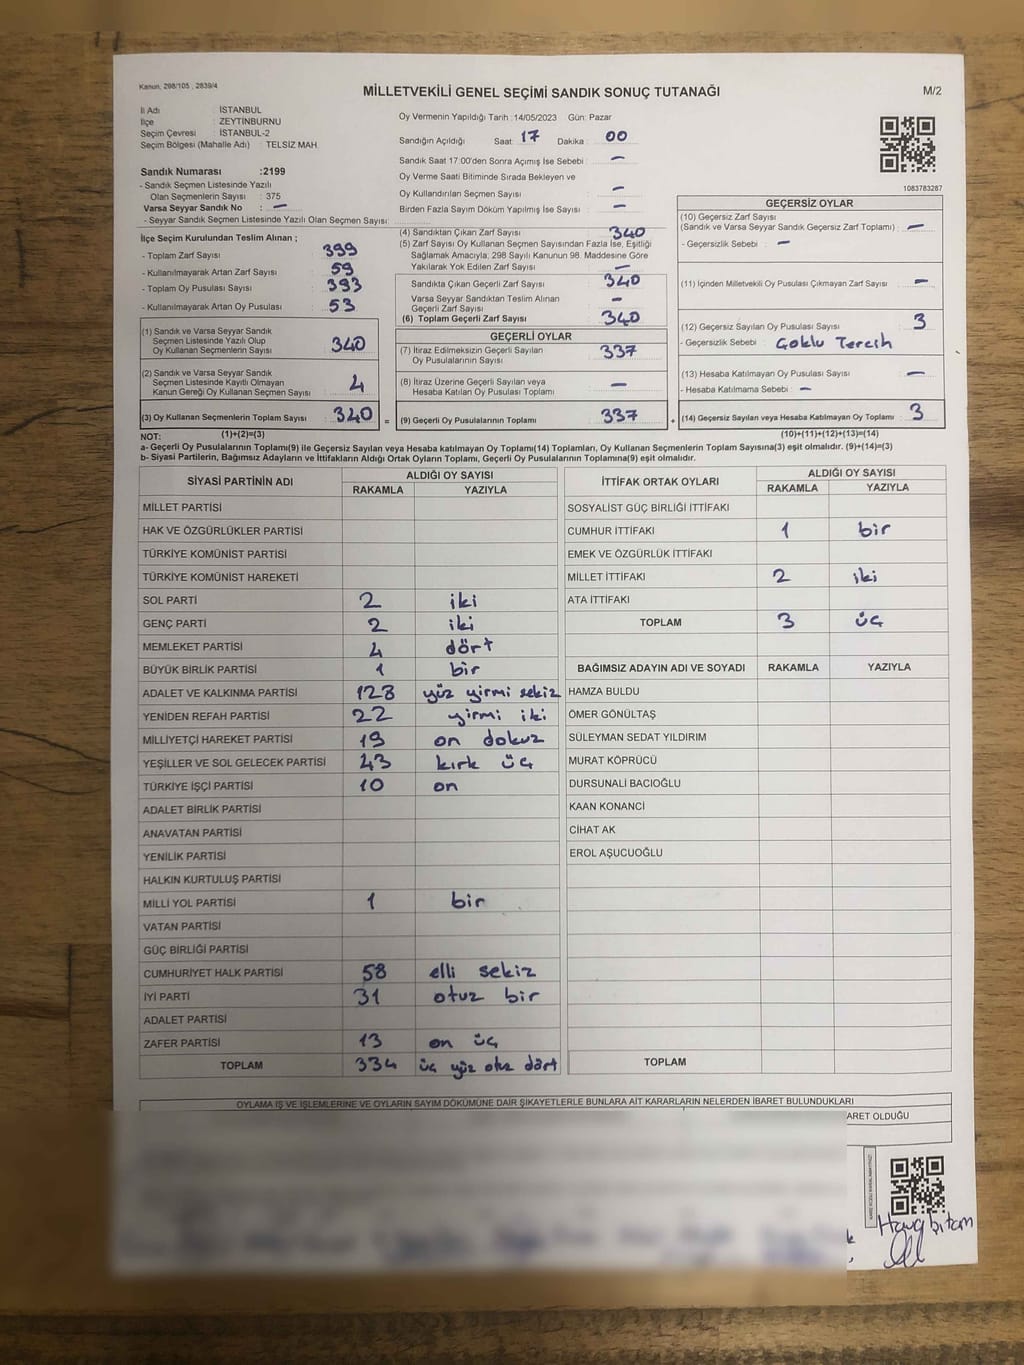 Kanun, 298/105 , 2839/4
MİLLETVEKİLİ GENEL SEÇİMİ SANDIK SONUÇ TUTANAĞI
M/2
İl Adı : İSTANBUL
İlçe : ZEYTİNBURNU
Seçim Çevresi : İSTANBUL-2
Seçim Bölgesi (Mahalle Adı) : TELSİZ MAH.
Sandık Numarası :2199
- Sandık Seçmen Listesinde Yazılı
Olan Seçmenlerin Sayısı : 375
Varsa Seyyar Sandık No : –
- Seyyar Sandık Seçmen Listesinde Yazılı Olan Seçmen Sayısı:
Oy Vermenin Yapıldığı Tarih : 14/05/2023 Gün: Pazar
Sandığın Açıldığı Saat: 17 Dakika : 00
Sandık Saat 17:00'den Sonra Açılmış İse Sebebi : –
Oy Verme Saati Bitiminde Sırada Bekleyen ve
Oy Kullandırılan Seçmen Sayısı : –
Birden Fazla Sayım Döküm Yapılmış İse Sayısı : –
1083783287
İlçe Seçim Kurulundan Teslim Alınan ;
- Toplam Zarf Sayısı : 399
- Kullanılmayarak Artan Zarf Sayısı : 59
- Toplam Oy Pusulası Sayısı : 393
- Kullanılmayarak Artan Oy Pusulası : 53
(1) Sandık ve Varsa Seyyar Sandık
Seçmen Listesinde Yazılı Olup
Oy Kullanan Seçmenlerin Sayısı : 340
(2) Sandık ve Varsa Seyyar Sandık
Seçmen Listesinde Kayıtlı Olmayan
Kanun Gereği Oy Kullanan Seçmen Sayısı : 4
(3) Oy Kullanan Seçmenlerin Toplam Sayısı : 340 =
(1)+(2)=(3)
(4) Sandıktan Çıkan Zarf Sayısı : 340
(5) Zarf Sayısı Oy Kullanan Seçmen Sayısından Fazla İse, Eşitliği
Sağlamak Amacıyla; 298 Sayılı Kanunun 98. Maddesine Göre
Yakılarak Yok Edilen Zarf Sayısı : –
Sandıkta Çıkan Geçerli Zarf Sayısı : 340
Varsa Seyyar Sandıktan Teslim Alınan
Geçerli Zarf Sayısı : –
(6) Toplam Geçerli Zarf Sayısı : 340
GEÇERLİ OYLAR
(7) İtiraz Edilmeksizin Geçerli Sayılan
Oy Pusulalarının Sayısı : 337
(8) İtiraz Üzerine Geçerli Sayılan veya
Hesaba Katılan Oy Pusulası Toplamı : –
(9) Geçerli Oy Pusulalarının Toplamı : 337 +
GEÇERSİZ OYLAR
(10) Geçersiz Zarf Sayısı
(Sandık ve Varsa Seyyar Sandık Geçersiz Zarf Toplamı) : –
- Geçersizlik Sebebi : –
(11) İçinden Milletvekili Oy Pusulası Çıkmayan Zarf Sayısı : –
(12) Geçersiz Sayılan Oy Pusulası Sayısı : 3
- Geçersizlik Sebebi : Çoklu Tercih
(13) Hesaba Katılmayan Oy Pusulası Sayısı : –
- Hesaba Katılmama Sebebi : –
(14) Geçersiz Sayılan veya Hesaba Katılmayan Oy Toplamı : 3
(10)+(11)+(12)+(13)=(14)
NOT:
a- Geçerli Oy Pusulalarının Toplamı(9) ile Geçersiz Sayılan veya Hesaba katılmayan Oy Toplamı(14) Toplamları, Oy Kullanan Seçmenlerin Toplam Sayısına(3) eşit olmalıdır. (9)+(14)=(3)
b- Siyasi Partilerin, Bağımsız Adayların ve İttifakların Aldığı Ortak Oyların Toplamı, Geçerli Oy Pusulalarının Toplamına(9) eşit olmalıdır.
SİYASİ PARTİNİN ADI ALDIĞI OY SAYISI
RAKAMLA YAZIYLA
MİLLET PARTİSİ
HAK VE ÖZGÜRLÜKLER PARTİSİ
TÜRKİYE KOMÜNİST PARTİSİ
TÜRKİYE KOMÜNİST HAREKETİ
SOL PARTİ 2 iki
GENÇ PARTİ 2 iki
MEMLEKET PARTİSİ 4 dört
BÜYÜK BİRLİK PARTİSİ 1 bir
ADALET VE KALKINMA PARTİSİ 128 yüz yirmi sekiz
YENİDEN REFAH PARTİSİ 22 yirmi iki
MİLLİYETÇİ HAREKET PARTİSİ 19 on dokuz
YEŞİLLER VE SOL GELECEK PARTİSİ 43 kırk üç
TÜRKİYE İŞÇİ PARTİSİ 10 on
ADALET BİRLİK PARTİSİ
ANAVATAN PARTİSİ
YENİLİK PARTİSİ
HALKIN KURTULUŞ PARTİSİ
MİLLİ YOL PARTİSİ 1 bir
VATAN PARTİSİ
GÜÇ BİRLİĞİ PARTİSİ
CUMHURİYET HALK PARTİSİ 58 elli sekiz
İYİ PARTİ 31 otuz bir
ADALET PARTİSİ
ZAFER PARTİSİ 13 on üç
TOPLAM 334 üç yüz otuz dört
İTTİFAK ORTAK OYLARI ALDIĞI OY SAYISI
RAKAMLA YAZIYLA
SOSYALİST GÜÇ BİRLİĞİ İTTİFAKI
CUMHUR İTTİFAKI 1 bir
EMEK VE ÖZGÜRLÜK İTTİFAKI
MİLLET İTTİFAKI 2 iki
ATA İTTİFAKI
TOPLAM 3 üç
BAĞIMSIZ ADAYIN ADI VE SOYADI RAKAMLA YAZIYLA
HAMZA BULDU
ÖMER GÖNÜLTAŞ
SÜLEYMAN SEDAT YILDIRIM
MURAT KÖPRÜCÜ
DURSUNALİ BACIOĞLU
KAAN KONANCİ
CİHAT AK
EROL AŞUCUOĞLU
TOPLAM
OYLAMA İŞ VE İŞLEMLERİNE VE OYLARIN SAYIM DÖKÜMÜNE DAİR ŞİKAYETLERLE BUNLARA AİT KARARLARIN NELERDEN İBARET BULUNDUKLARI
ARET OLDUĞU